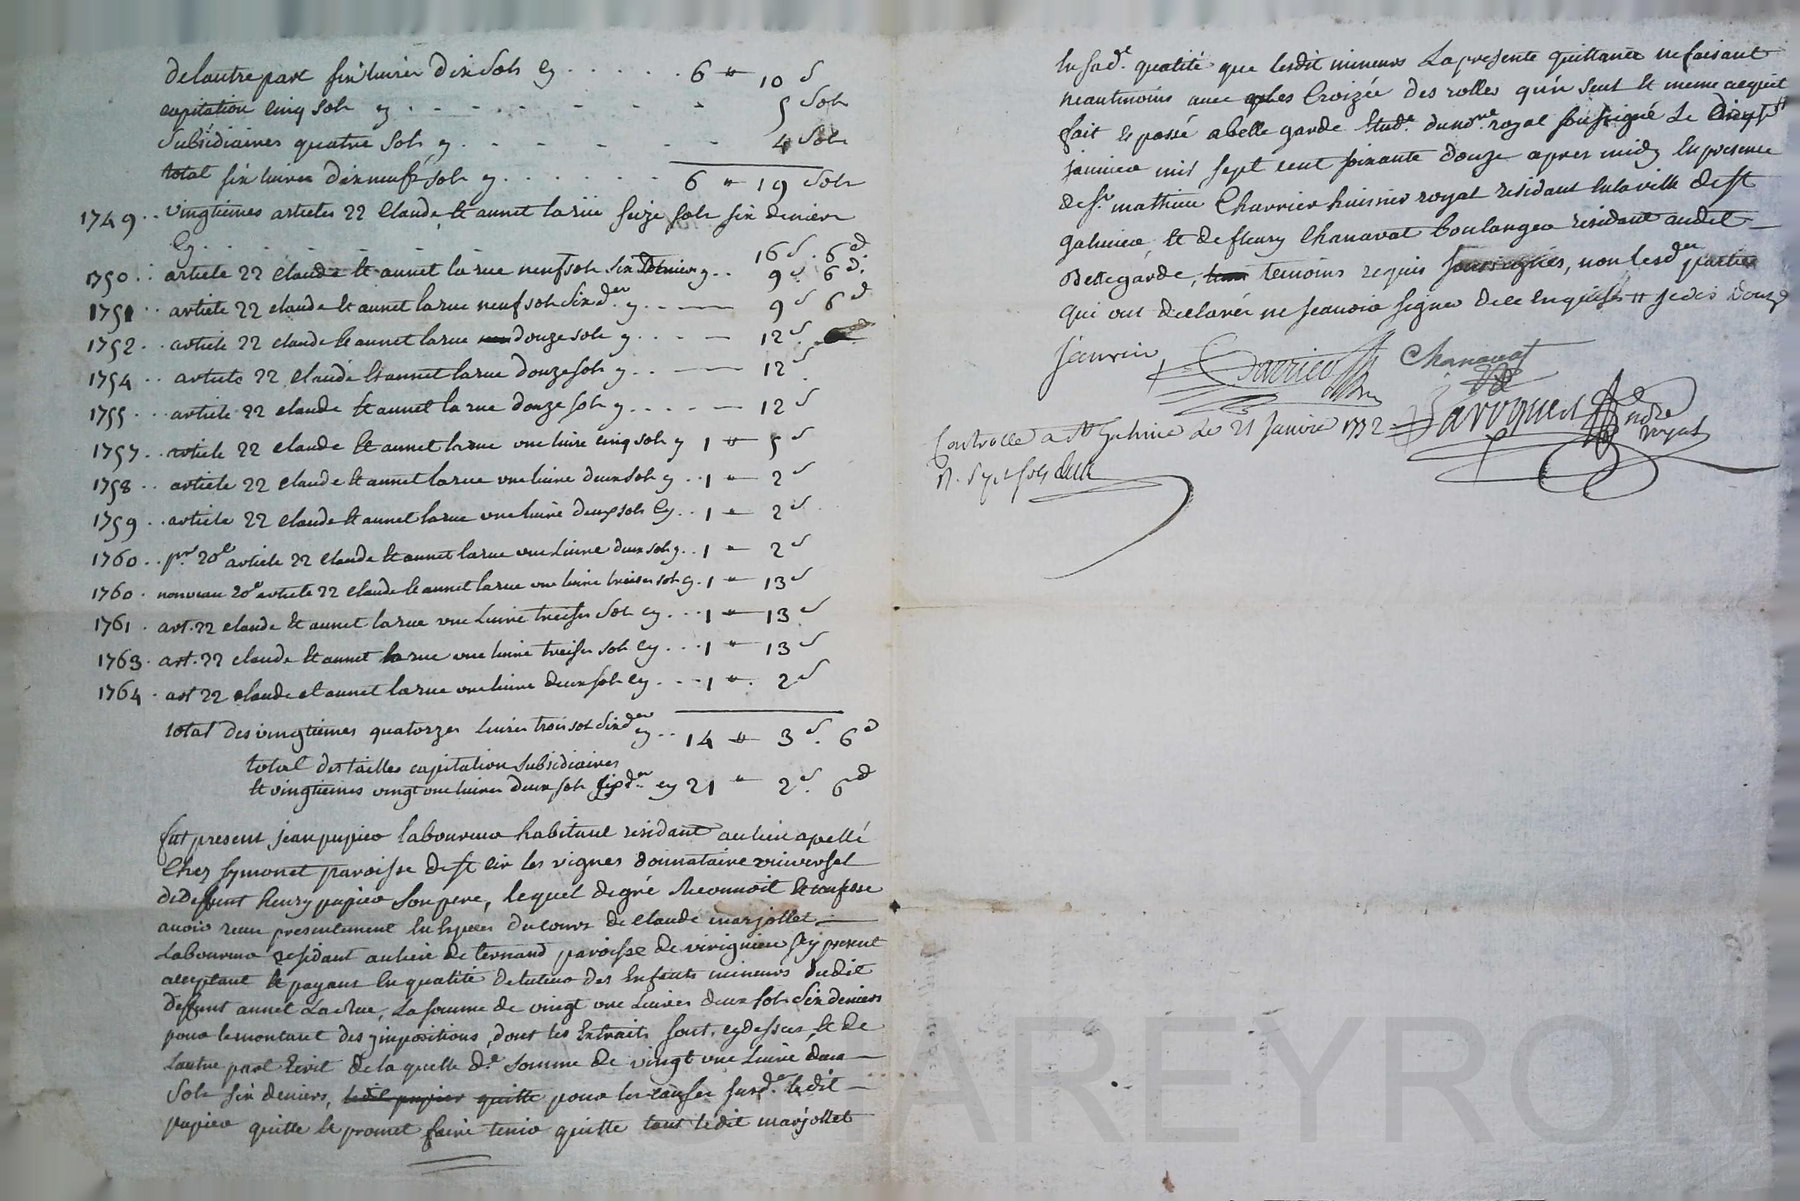 de lautre part six livres dix sols cy . . . . . . 6 " 10 s
capitation cinq sols cy . . . . . . . . 5 sols
Subsidiaires quatre sols cy . . . . . . . 4 sols
total six livres dix neuf sols cy . . . . . . 6 " 19 sols
1749 . . vingtiemes articles 22 Claude et annet larüe seize sols six deniers
cy . . . . . . . . 16 s . 6 d
1750 . . article 22 Claude et annet larue neuf sols six deniers cy . . 9 s . 6 d.
1751 . . article 22 claude et annet larue neuf sols six der cy . . 9 s 6 d
1752 . . article 22 claude et annet larue douze sols cy . . . . 12 s
1754 . . article 22 claude et annet larue douze sols cy . . . 12 s
1755 . . . article 22 claude et annet larue douze sols cy . . . . 12 s
1757 . . article 22 claude et annet larue une livre cinq sols cy 1 " 5 s
1758 . . article 22 claude et annet larue une livre deux sols cy . . 1 " 2 s
1759 . . article 22 claude et annet larue une livre deux sols cy . . 1 " 2 s
1760 . . pr. 20e article 22 claude et annet larue une livre deux sols cy . . 1 " 2 s
1760 . nouveau 20e article 22 claude et annet larue une livre treise sols cy . 1 " 13 s
1761 . art. 22 claude et annet larue une livre treise sols cy . . . 1 " 13 s
1763 . art. 22 claude et annet larue une livre treise sols cy . . . 1 " 13 s
1764 . art 22 claude et annet larue une livre deux sols cy . . . 1 " 2 s
total des vingtiemes quatorzes livres trois sols six der cy . . 14 " 3 s . 6 d
total des tailles capitation subsidiaires
et vingtiemes vingt une livres deux sols six der cy 21 " 2 s . 6 d
fut present jean pupier laboureur habitant residant au lieu apellé
Chez symonet paroisse de st cir les vignes donnataire universel
de deffunt henry pupier son pere, lequel de gré reconnoit et confesse
avoir reçu presentement en espèces du cours de claude marjollet
Laboureur residant au lieu de ternand paroisse de virignieu icy present
acceptant et payant en qualité de tuteur des enfants mineurs dudit
deffunt annet Larue, La somme de vingt une livres deux sols six deniers
pour le montant des impositions, dont les extraits sont cy dessus, et de
lautre part écrit de laquelle de. somme de vingt une livre deux
Sols six deniers, ledit pupier quitte pour les causes susde. ledit
pupier quitte et promet faire tenir quitte tant ledit marjollet
en sade. qualité que lesdit mineurs La presente quittance ne faisant
neantmoins avec les Croizée des rolles qu'un seul et meme acquit
fait et passé a bellegarde Etude du nore. royal soussigné Le
janvier mil sept cent soixante douze apres midy En presence
de sr. mathieu Charrier huissier royal residant en la ville de st
galmier, et de fleury Chanavat boulanger residant audit
Bellegarde, temoins requis soussignés, non lesd. parties
qui ont declarés ne scavoir signer de ce enquises
janvier
Charrier Chanavat
Controllé a st Galmier Le 21 Janvier 1772
R. sept sols
nore
royal
HAREYRON